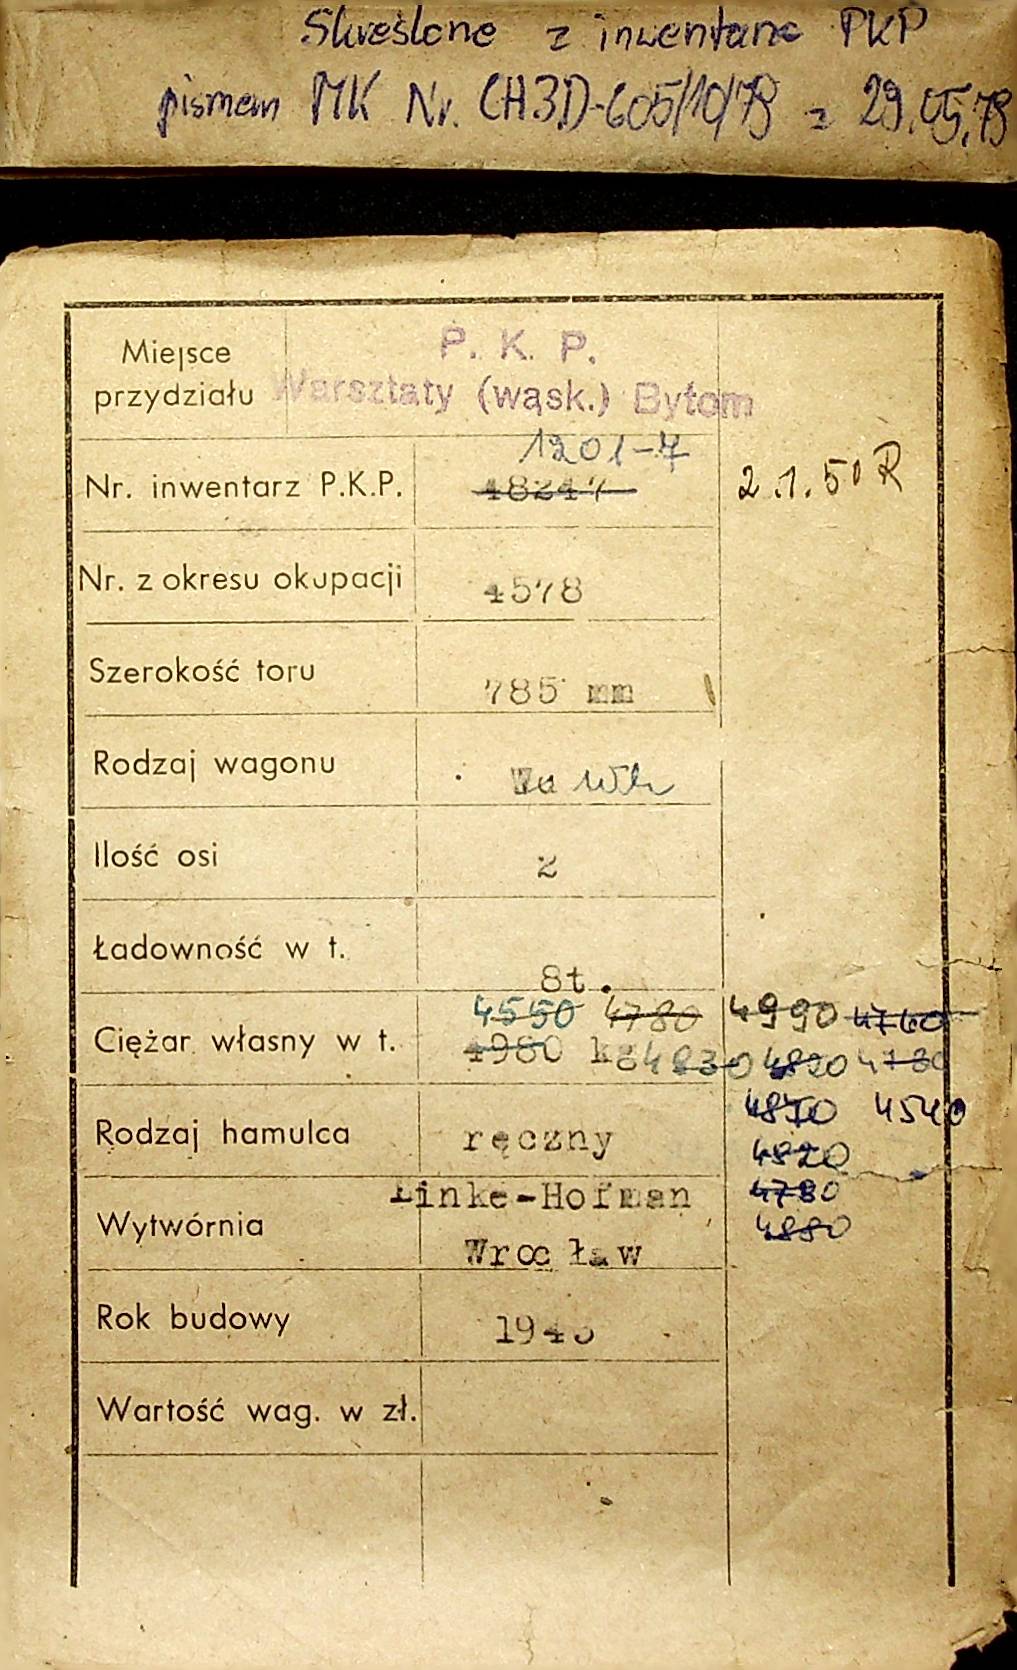 Skreślone z inwentarza PKP
pismem MK Nr. CH3D-605/10/78 z 29.05.78
Miejsce
przydziału
P. K. P.
Warsztaty (wąsk.) Bytom
1201-7
Nr. inwentarz P.K.P. 48247 2.1.50 R
Nr. z okresu okupacji 4578
Szerokość toru 785 mm
Rodzaj wagonu
Ilość osi 2
Ładowność w t. 8t.
4550 4780 4990 4760
Ciężar własny w t. 4980 kg 4830 4820 4780
4870 4540
Rodzaj hamulca ręczny 4820
Linke-Hofman 4780
Wytwórnia 4880
Wrocław
Rok budowy
Wartość wag. w zł.